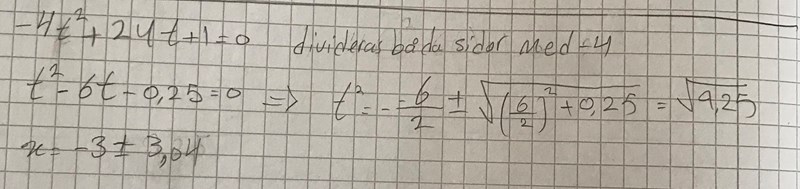 -4t²+24t+1=0 divideras båda sidor med -4
t²-6t-0,25=0 => t²=--6/2 ± √((6/2)²+0,25) = √9,25
x=-3±3,04